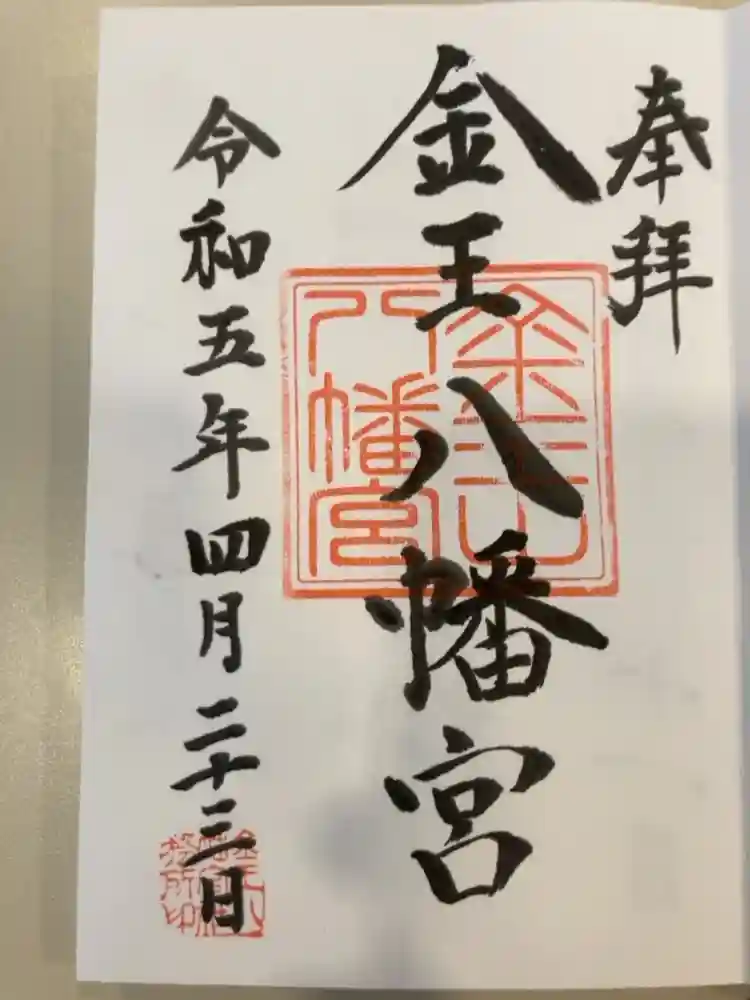 奉拝
金王八幡宮
令和五年四月二十三日
金王八幡宮